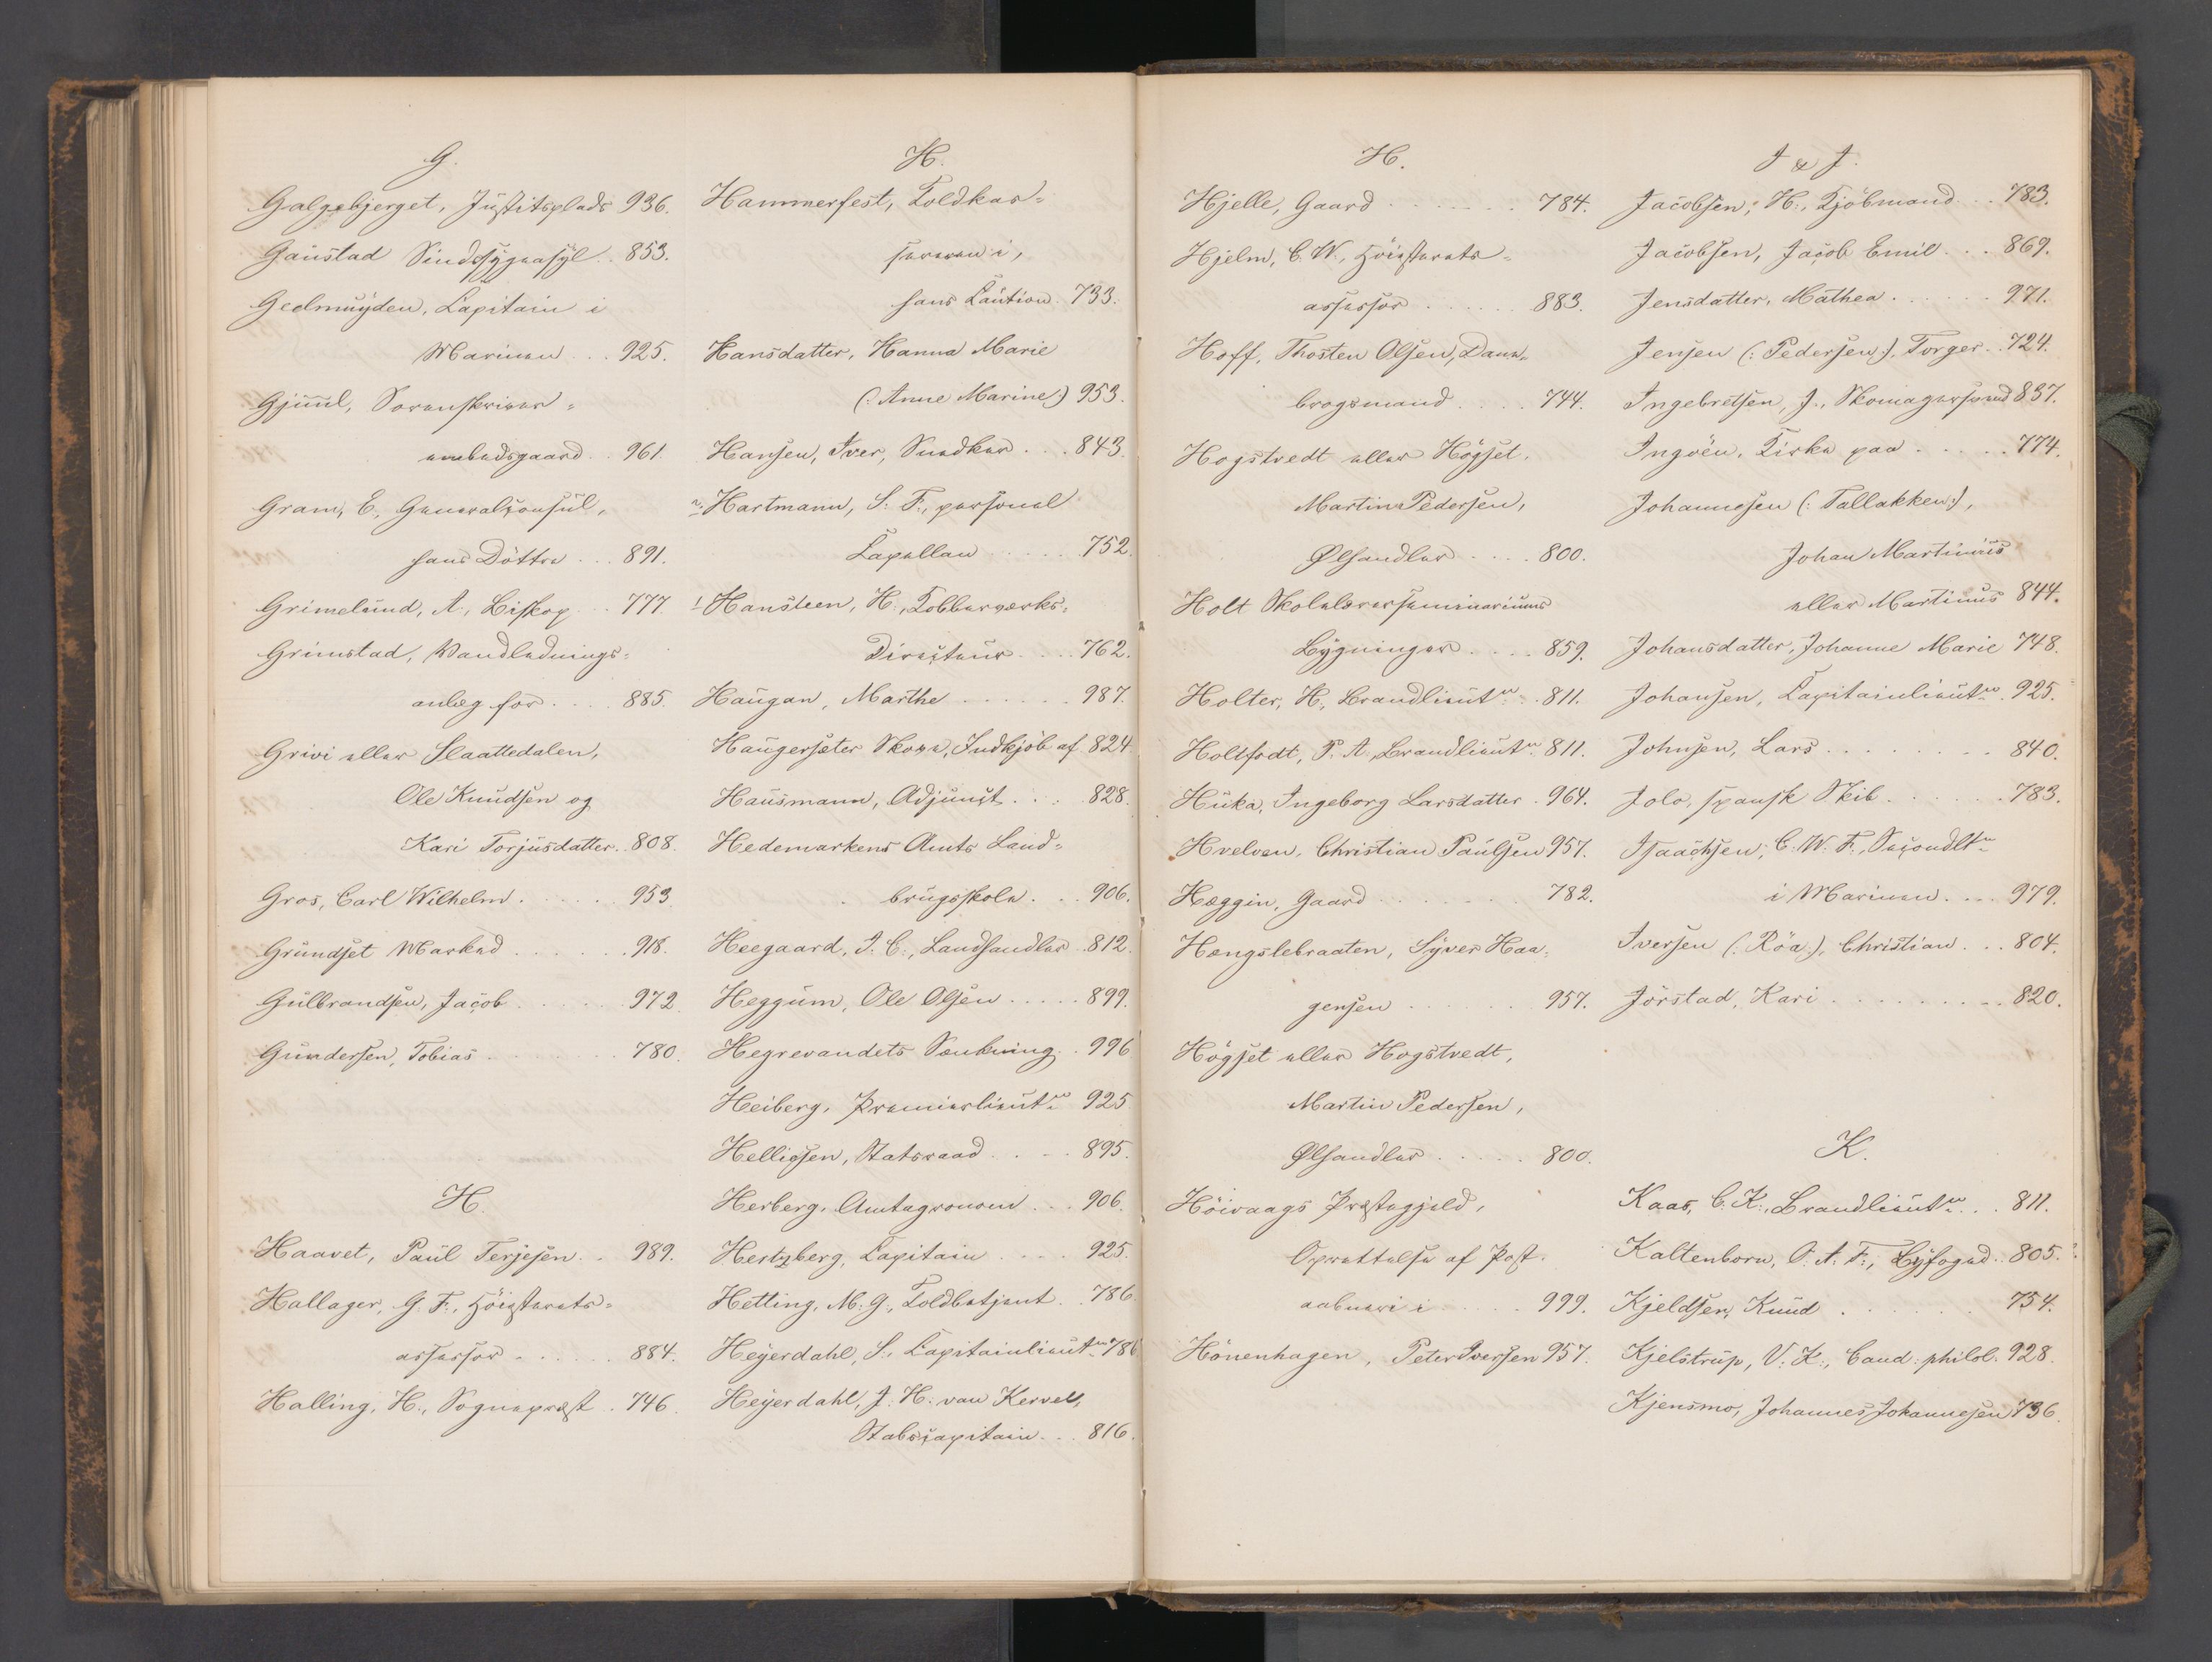 G.
Galgebjerget, Justitsplads 936.
Gaustad Sindssygeasyl . . 853.
Geelmuyden, Capitain i
Marinen . . . 925.
Gjuul, Sorenskriver-
embedsgaard . . 961.
Gram, E., Generalconsul,
hans Döttre . . . 891.
Grimelund, A., Biskop . . 777.
Grimstad, Vandlednings-
anlæg for . . . . 885.
Grivi eller Slaattedalen,
Ole Knudsen og
Kari Torjusdatter . . 808.
Gros, Carl Wilhelm . . . . . 953.
Grundset Marked . . . . . . 918.
Gulbrandsen, Jacob . . . . . 972.
Gundersen, Tobias . . . . . . 780.
H.
Haavet, Paul Terjesen . . 989.
Hallager, G. F., Höiesterets-
assessor . . . . . . 884.
Halling, H., Sognepræst . 746.
H.
Hammerfest, Toldkas-
sereren i,
hans Caution . 733.
Hansdatter, Hanna Marie
(: Anne Marine :) 953.
Hansen, Iver, Snedker . . . 843.
2, Hartmann, S. F., personel
Capellan . . . . . 752.
1 Hansteen, H., Kobberværks-
Directeur . . . . 762.
Haugan, Marthe . . . . . . . 987.
Haugerseter Skove, Indkjöb af 824.
Hausmann, Adjunct . . . . 828.
Hedemarkens Amts Land-
brugsskole . . . 906.
Heegaard, J. C., Landhandler . 812.
Heggum, Ole Olsen . . . . . 899.
Hegrevandets Sænkning . . 996
Heiberg, Premierlieutn. 925
Helliesen, Statsraad . . . . 895.
Herberg, Amtagronom . . . 906.
Hertzberg, Capitain . . . . 925.
Hetting, M. G., Toldbetjent . . 786.
Heyerdahl, S., Capitainlieutn. 786
Heyerdahl, J. H. van Kervel,
Stabscapitain . . . 816.
H.
Hjelle, Gaard . . . . . . . 784.
Hjelm, C. W., Höiesterets-
assessor . . . . . . 883.
Hoff, Thosten Olsen, Danne-
brogsmand . . . . 744.
Hogstvedt eller Högset,
Martin Pedersen,
Ølhandler . . . . 800.
Holt Skolelærerseminariums
Bygninger . . . . 859.
Holter, H., Brandlieutn. . . 811.
Holtfodt, P. A., Brandlieutn. 811.
Huka, Ingeborg Larsdatter . 964.
Hvelven, Christian Paulsen 957.
Hæggin, Gaard . . . . . . . 782.
Hængslebraaten, Syver Haa-
gensen . . . . . . . 957.
Högset eller Hogstvedt,
Martin Pedersen,
Ølhandler . . . . . 800.
Höivaags Præstegjeld,
Oprettelse af Post-
aabneri i . . . . . 999.
Hönenhagen, Peter Iversen 957.
I & J.
Jacobsen, H., Kjöbmand . . . 783.
Jacobsen, Jacob Emil . . . 869.
Jensdatter, Mathea . . . . . . 971.
Jensen (: Pedersen :), Torger . . 724.
Ingebretsen, J., Skomagersvend 837.
Ingöen, Kirke paa . . . . . 774.
Johannesen (: Tallakken :),
Johan Martinius
eller Martinus 844.
Johansdatter, Johanne Marie 748.
Johansen, Capitainlieutn. 925.
Johnsen, Lars . . . . . . . . 840.
Jolo, spansk Skib . . . . . . 783.
Isaachsen, C. W. F., Secondltn.
i Marinen . . . . 979.
Iversen (: Röa :), Christian . . . 804.
Jörstad, Kari . . . . . . . . . 820.
K.
Kaas, C. K., Brandlieutn. . . 811.
Kaltenborn, O. A. F., Byfoged . . 805.
Kjeldsen, Knud . . . . . . . 754.
Kjelstrup, V. K., Cand: philol. 928.
Kjensmo, Johannes Johannesen 736.